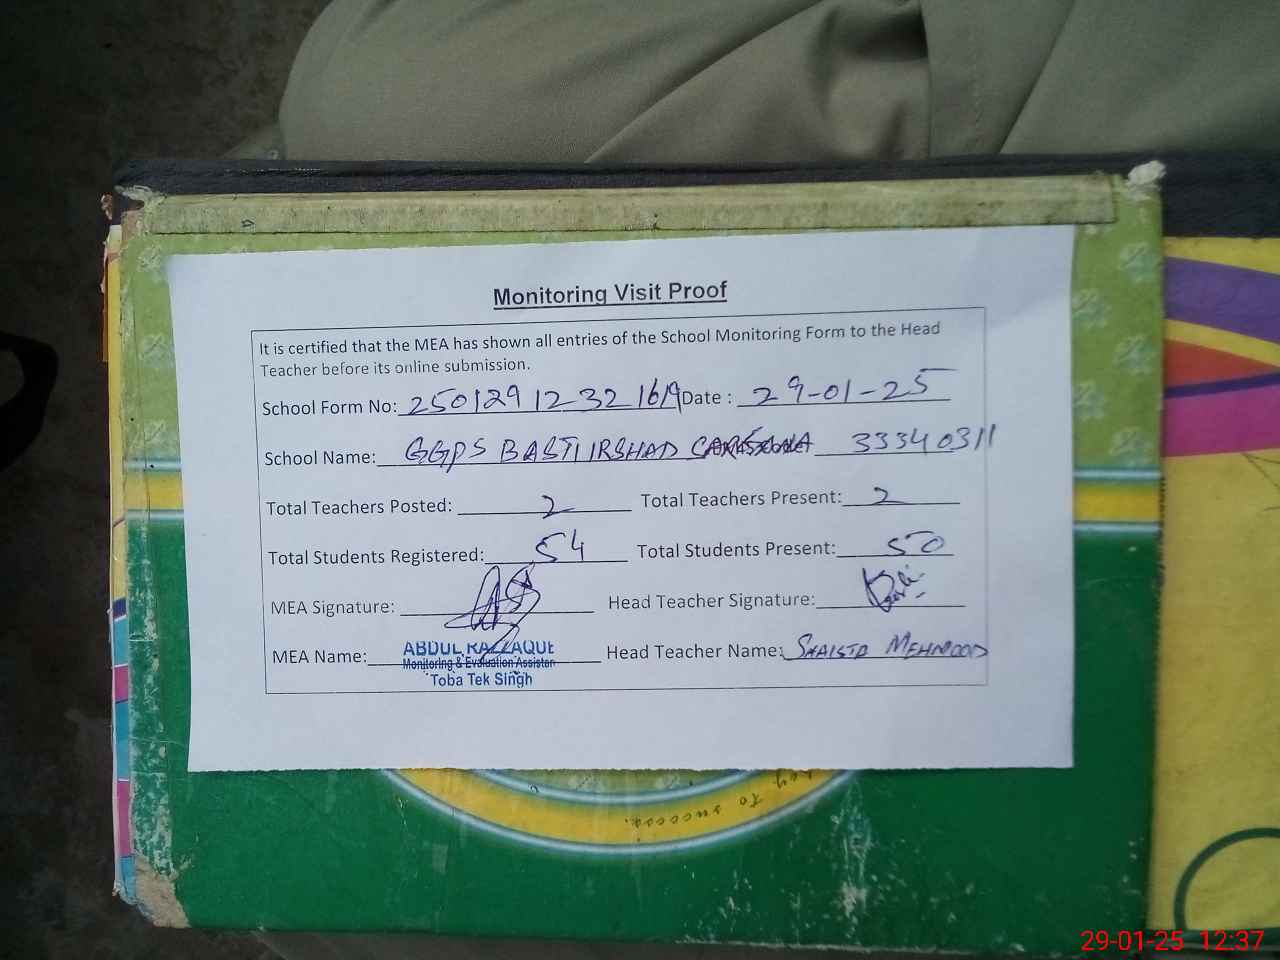 Monitoring Visit Proof
It is certified that the MEA has shown all entries of the School Monitoring Form to the Head
Teacher before its online submission.
School Form No: 25012912321619 Date : 29-01-25
School Name: GGPS BASTI IRSHAD 33340311
Total Teachers Posted: 2 Total Teachers Present: 2
Total Students Registered: 54 Total Students Present: 50
MEA Signature: Head Teacher Signature:
MEA Name: ABDUL RAZZAQUE Head Teacher Name: SHAISTA MEHMOOD
Monitoring & Evaluation Assistan
Toba Tek Singh
key to success.
29-01-25 12:37